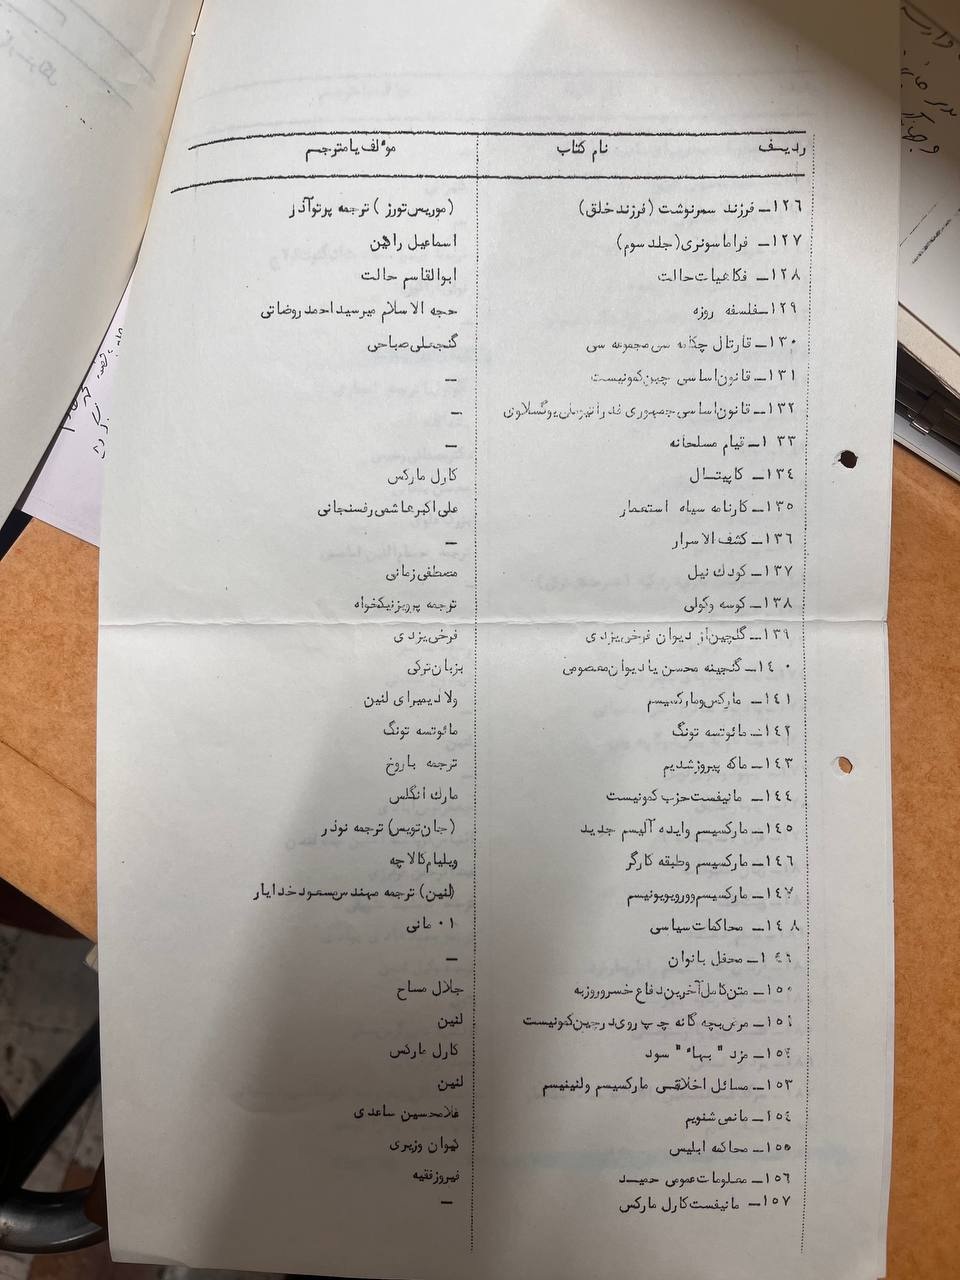 ردیـف نام کتاب مؤلف یا مترجم
١٢٦ـ فرزند سرنوشت (فرزند خلق) (موریس تورز) ترجمه پرتوآذر
١٢٧ـ فراماسونری (جلد سوم) اسماعیل رائین
١٢٨ـ فکاهیات حالت ابوالقاسم حالت
١٢٩ـ فلسفه روزه حجه الاسلام میرسیداحمد روضاتی
١٣٠ـ قارتال چکامه سی مجموعه سی گنجعلی صباحی
١٣١ـ قانون اساسی چین کمونیست ـ
١٣٢ـ قانون اساسی جمهوری فدراتیو ملی یوگسلاوی ـ
١٣٣ـ قیام مسلحانه ـ
١٣٤ـ کاپیتـال کارل مارکس
١٣٥ـ کارنامه سیاه استعمار علی اکبر هاشمی رفسنجانی
١٣٦ـ کشف الاسرار ـ
١٣٧ـ کودك نیل مصطفی زمانی
١٣٨ـ کوسه وکولی ترجمه پرویزنیکخواه
١٣٩ـ گلچین از دیوان فرخی یزدی فرخی یزدی
١٤٠ـ گنجینه محسن یا دیوان معصومی بزبان ترکی
١٤١ـ مارکس ومارکسیسم ولادیمیرای لنین
١٤٢ـ مائوتسه تونگ مائوتسه تونگ
١٤٣ـ ماکه پیروزشدیم ترجمه باروخ
١٤٤ـ مانیفست حزب کمونیست مارك انگلس
١٤٥ـ مارکسیسم وایده آلیسم جدید (جان تویس) ترجمه نوذر
١٤٦ـ مارکسیسم وطبقه کارگر ویلیام کالاچه
١٤٧ـ مارکسیسم وورویوپونیسم (لنین) ترجمه مهندس مسعود خدایار
١٤٨ـ محاکمات سیاسی ٠١ مانی
١٤٩ـ محفل بانوان ـ
١٥٠ـ متن کامل آخرین دفاع خسروروزبه جلال مساح
١٥١ـ مرض بچه گانه چپ روی در چین کمونیست لنین
١٥٢ـ مزد " بهاء " سود کارل مارکس
١٥٣ـ مسائل اخلاقـی مارکسیسم ولنینیسم لنین
١٥٤ـ مانمی شنویم غلامحسین ساعدی
١٥٥ـ محاکمه ابلیس کیوان وزیری
١٥٦ـ معلومات عمومی حمیـد فیروز فقیه
١٥٧ـ مانیفست کارل مارکس ـ